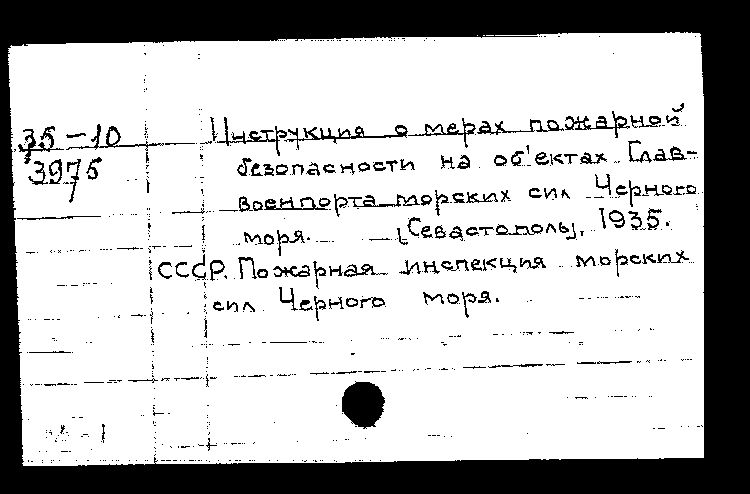 35-10
3975
Инструкция о мерах пожарной
безопасности на об'ектах Глав-
военпорта морских сил Черного
моря. [Севастополь], 1935.
СССР. Пожарная инспекция морских
сил Черного моря.